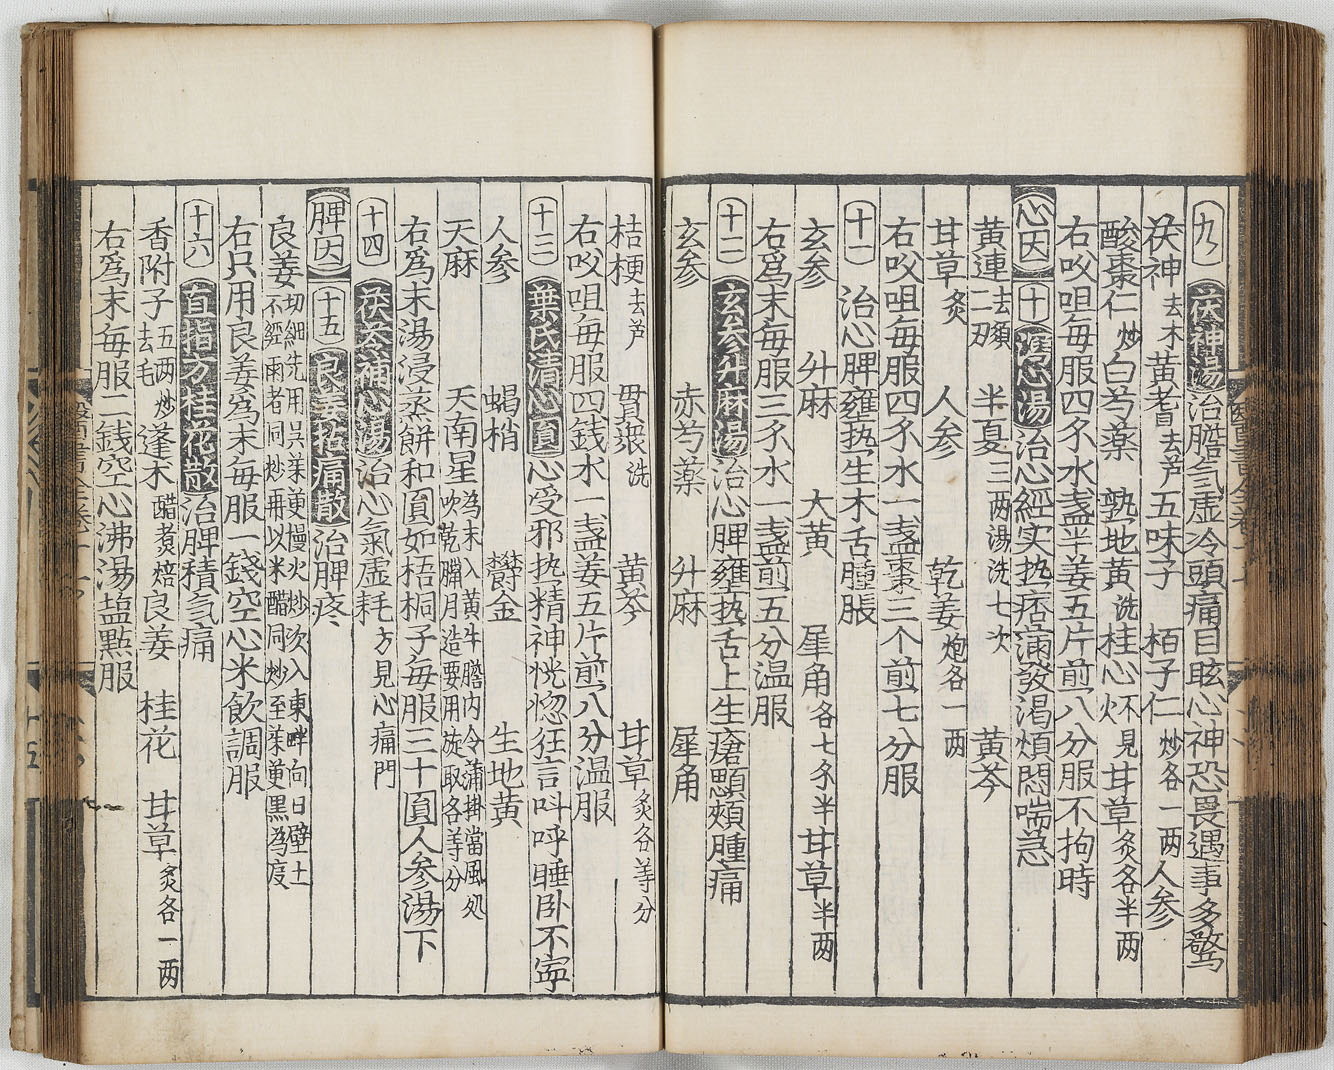 九 茯神湯 治膽气虚冷頭痛目眩心神恐畏遇事多驚
茯神去木 黄耆去芦 五味子 栢子仁炒各一两 人参
酸棗仁炒 白芍薬 熟地黄洗 桂心不見火 甘草炙各半两
右㕮咀每服四錢水盏半姜五片煎八分服不拘時
心因 十 瀉心湯 治心經实热痞满發渇煩悶喘急
黄連去鬚二两 半夏三两湯洗七次 黄芩
甘草炙 人参 乾姜炮各一两
右㕮咀每服四錢水一盏棗三个煎七分服
十一 治心脾壅热生木舌腫脹
玄参 升麻 大黄 犀角各七錢半 甘草半两
右爲末每服三錢水一盏煎五分温服
十二 玄参升麻湯 治心脾壅热舌上生瘡顋頰腫痛
玄参 赤芍薬 升麻 犀角
桔梗去芦 貫衆洗 黄芩 甘草炙各等分
右㕮咀每服四銭水一盏姜五片煎八分温服
十三 葉氏清心圓 心受邪热精神恍惚狂言呌呼睡卧不寧
人参 蝎梢 欝金 生地黄
天麻 天南星爲末入黄牛膽内令蒲掛當風処吹乾臘月造要用旋取各等分
右爲末湯浸蒸餅和圓如梧桐子每服三十圓人参湯下
十四 茯苓補心湯 治心氣虚耗方見心痛門
脾因 十五 良姜拈痛散 治脾疼
良姜切細先用呉茱萸慢火炒次入東畔向日壁土不經雨者同炒再以米醋同炒至茱萸黒為度
右只用良姜爲末每服一錢空心米飲調服
十六 直指方桂花散 治脾積气痛
香附子五两炒去毛 蓬朮醋煑焙 良姜 桂花 甘草炙各一两
右爲末每服二銭空心沸湯盐點服